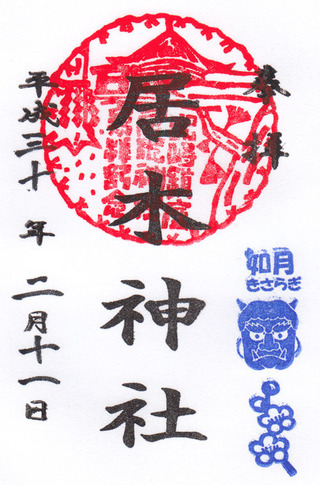 奉拝
如月
きさらぎ
居木神社
平成三十年二月十一日